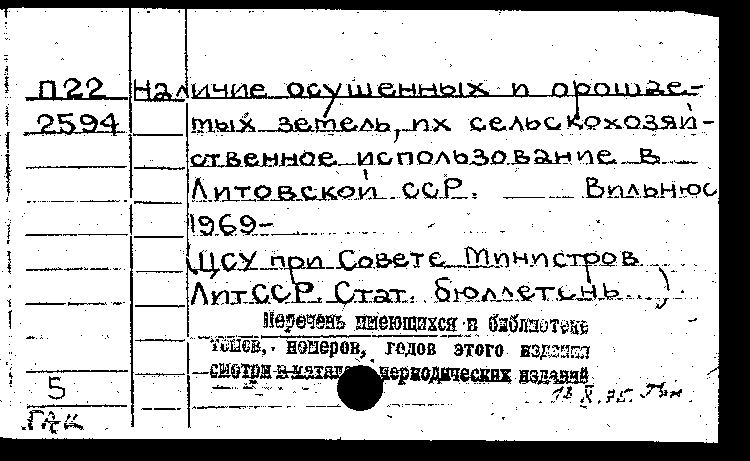 П22 Наличие осушенных и орошае-
2594 мых земель, их сельскохозяй-
ственное использование в
Литовской ССР. Вильнюс
1969-
(ЦСУ при Совете Министров
ЛитССР. Стат. бюллетень...)
Перечень имеющихся в библиотеке
томов, номеров, годов этого издания
смотри в каталоге периодических изданий
5